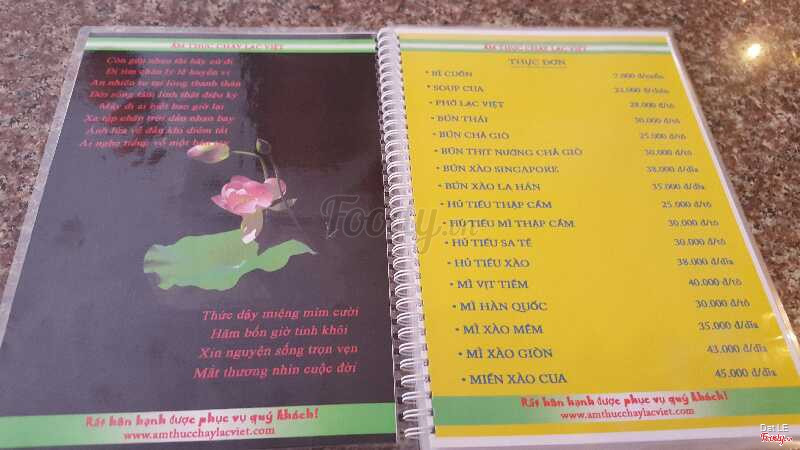 ẨM THỰC CHAY LẠC VIỆT
Còn gặp nhau thì hãy cứ đi
Đi tìm chân lý lẽ huyền vi
An nhiên tu tại lòng thanh thản
Đời sống tâm linh thật diệu kỳ
Mấy đi ai biết bao giờ lại
Xa tập chân trời dần nhau bay
Ánh lửa về đâu khi đóm tắt
Ai nghe tiếng vỗ một bàn tay
Thức dậy miệng mỉm cười
Hăm bốn giờ tinh khôi
Xin nguyện sống trọn vẹn
Mắt thương nhìn cuộc đời
Rất hân hạnh được phục vụ quý khách!
www.amthucchaylacviet.com
ẨM THỰC CHAY LẠC VIỆT
THỰC ĐƠN
• BÌ CUỐN 7.000 đ/cuốn
• SOUP CUA 25.000 đ/chén
• PHỞ LẠC VIỆT 28.000 đ/tô
• BÚN THÁI 30.000 đ/tô
• BÚN CHẢ GIÒ 25.000 đ/tô
• BÚN THỊT NƯỚNG CHẢ GIÒ 30.000 đ/tô
• BÚN XÀO SINGAPORE 38.000 đ/dĩa
• BÚN XÀO LA HÁN 35.000 đ/dĩa
• HỦ TIẾU THẬP CẨM 25.000 đ/tô
• HỦ TIẾU MÌ THẬP CẨM 30.000 đ/tô
• HỦ TIẾU SA TẾ 30.000 đ/tô
• HỦ TIẾU XÀO 38.000 đ/dĩa
• MÌ VỊT TIỀM 40.000 đ/tô
• MÌ HÀN QUỐC 30.000 đ/tô
• MÌ XÀO MỀM 35.000 đ/dĩa
• MÌ XÀO GIÒN 43.000 đ/dĩa
• MIẾN XÀO CUA 45.000 đ/dĩa
Rất hân hạnh được phục vụ quý khách!
www.amthucchaylacviet.com
Foody.vn
Dat LE
Foody.vn